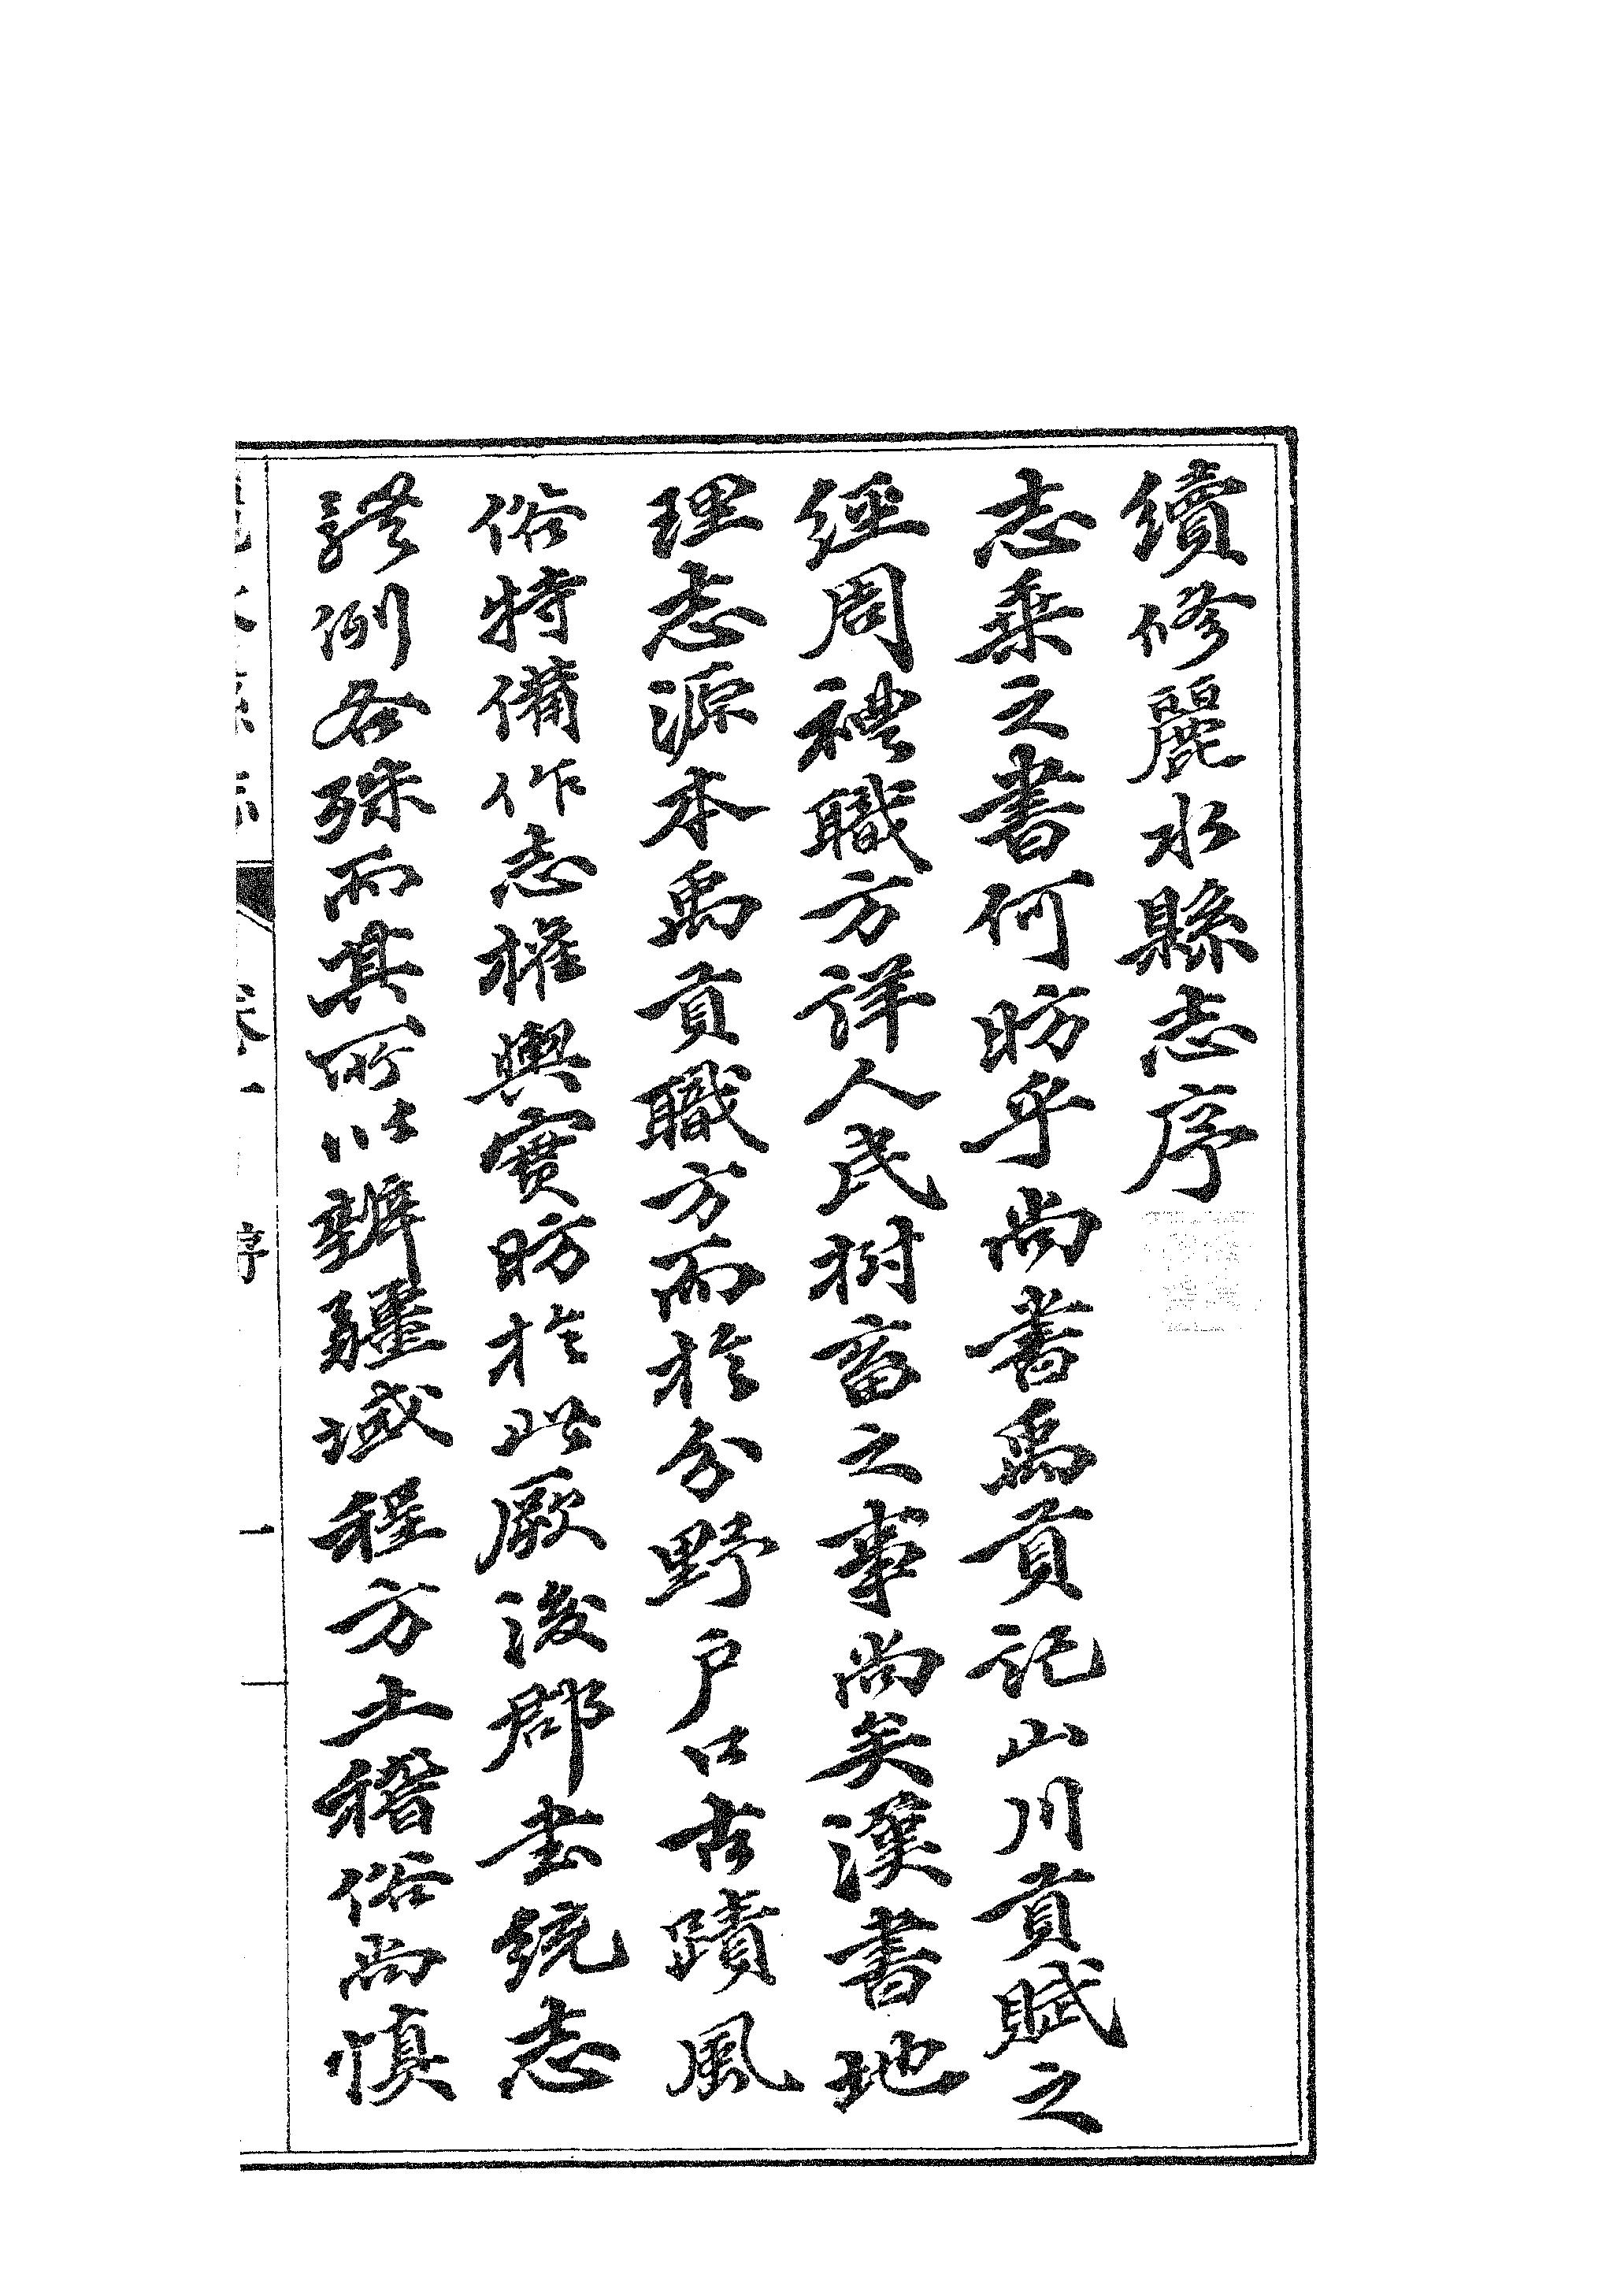 續修麗水縣志序
志乘之書何昉乎尚書禹貢記山川貢賦之
經周禮職方詳人民樹畜之事尚矣漢書地
理志源本禹貢職方而於分野戶口古蹟風
俗特備作志權輿實昉於此厥後郡書統志
例各殊而其所以辨疆域程方土稽俗尚慎
序
一